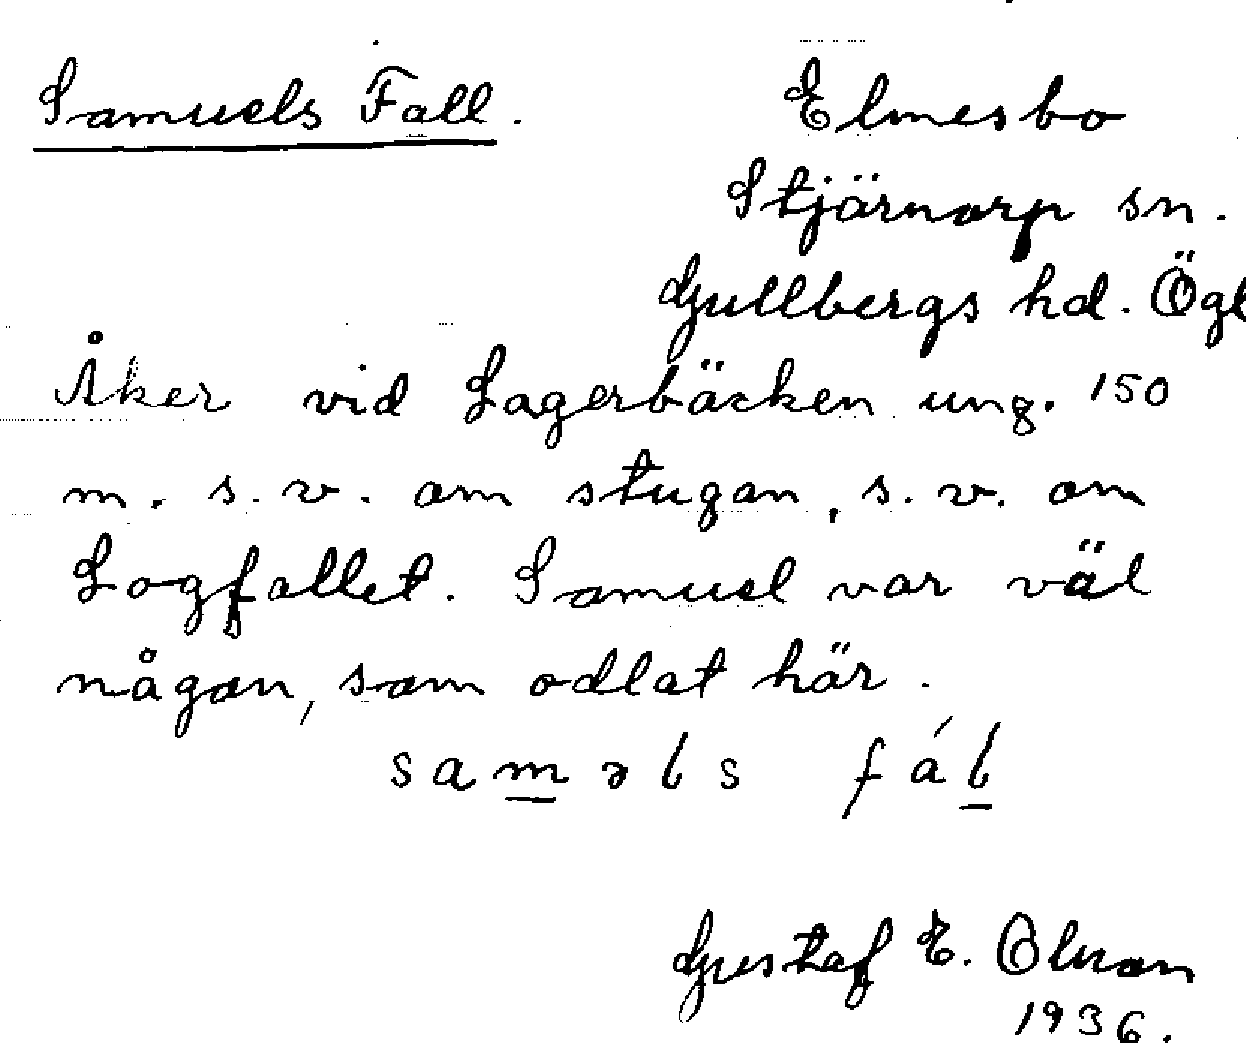 Samuels Fall.
Elmesbo
Stjärnorp sn.
Gullbergs hd. Ögl
Åker vid Lagerbäcken ung. 150
m. s.v. om stugan, s.v. om
Logfallet. Samuel var väl
någon, som odlat här.
saməls fál
Gustaf E. Olman
1936.